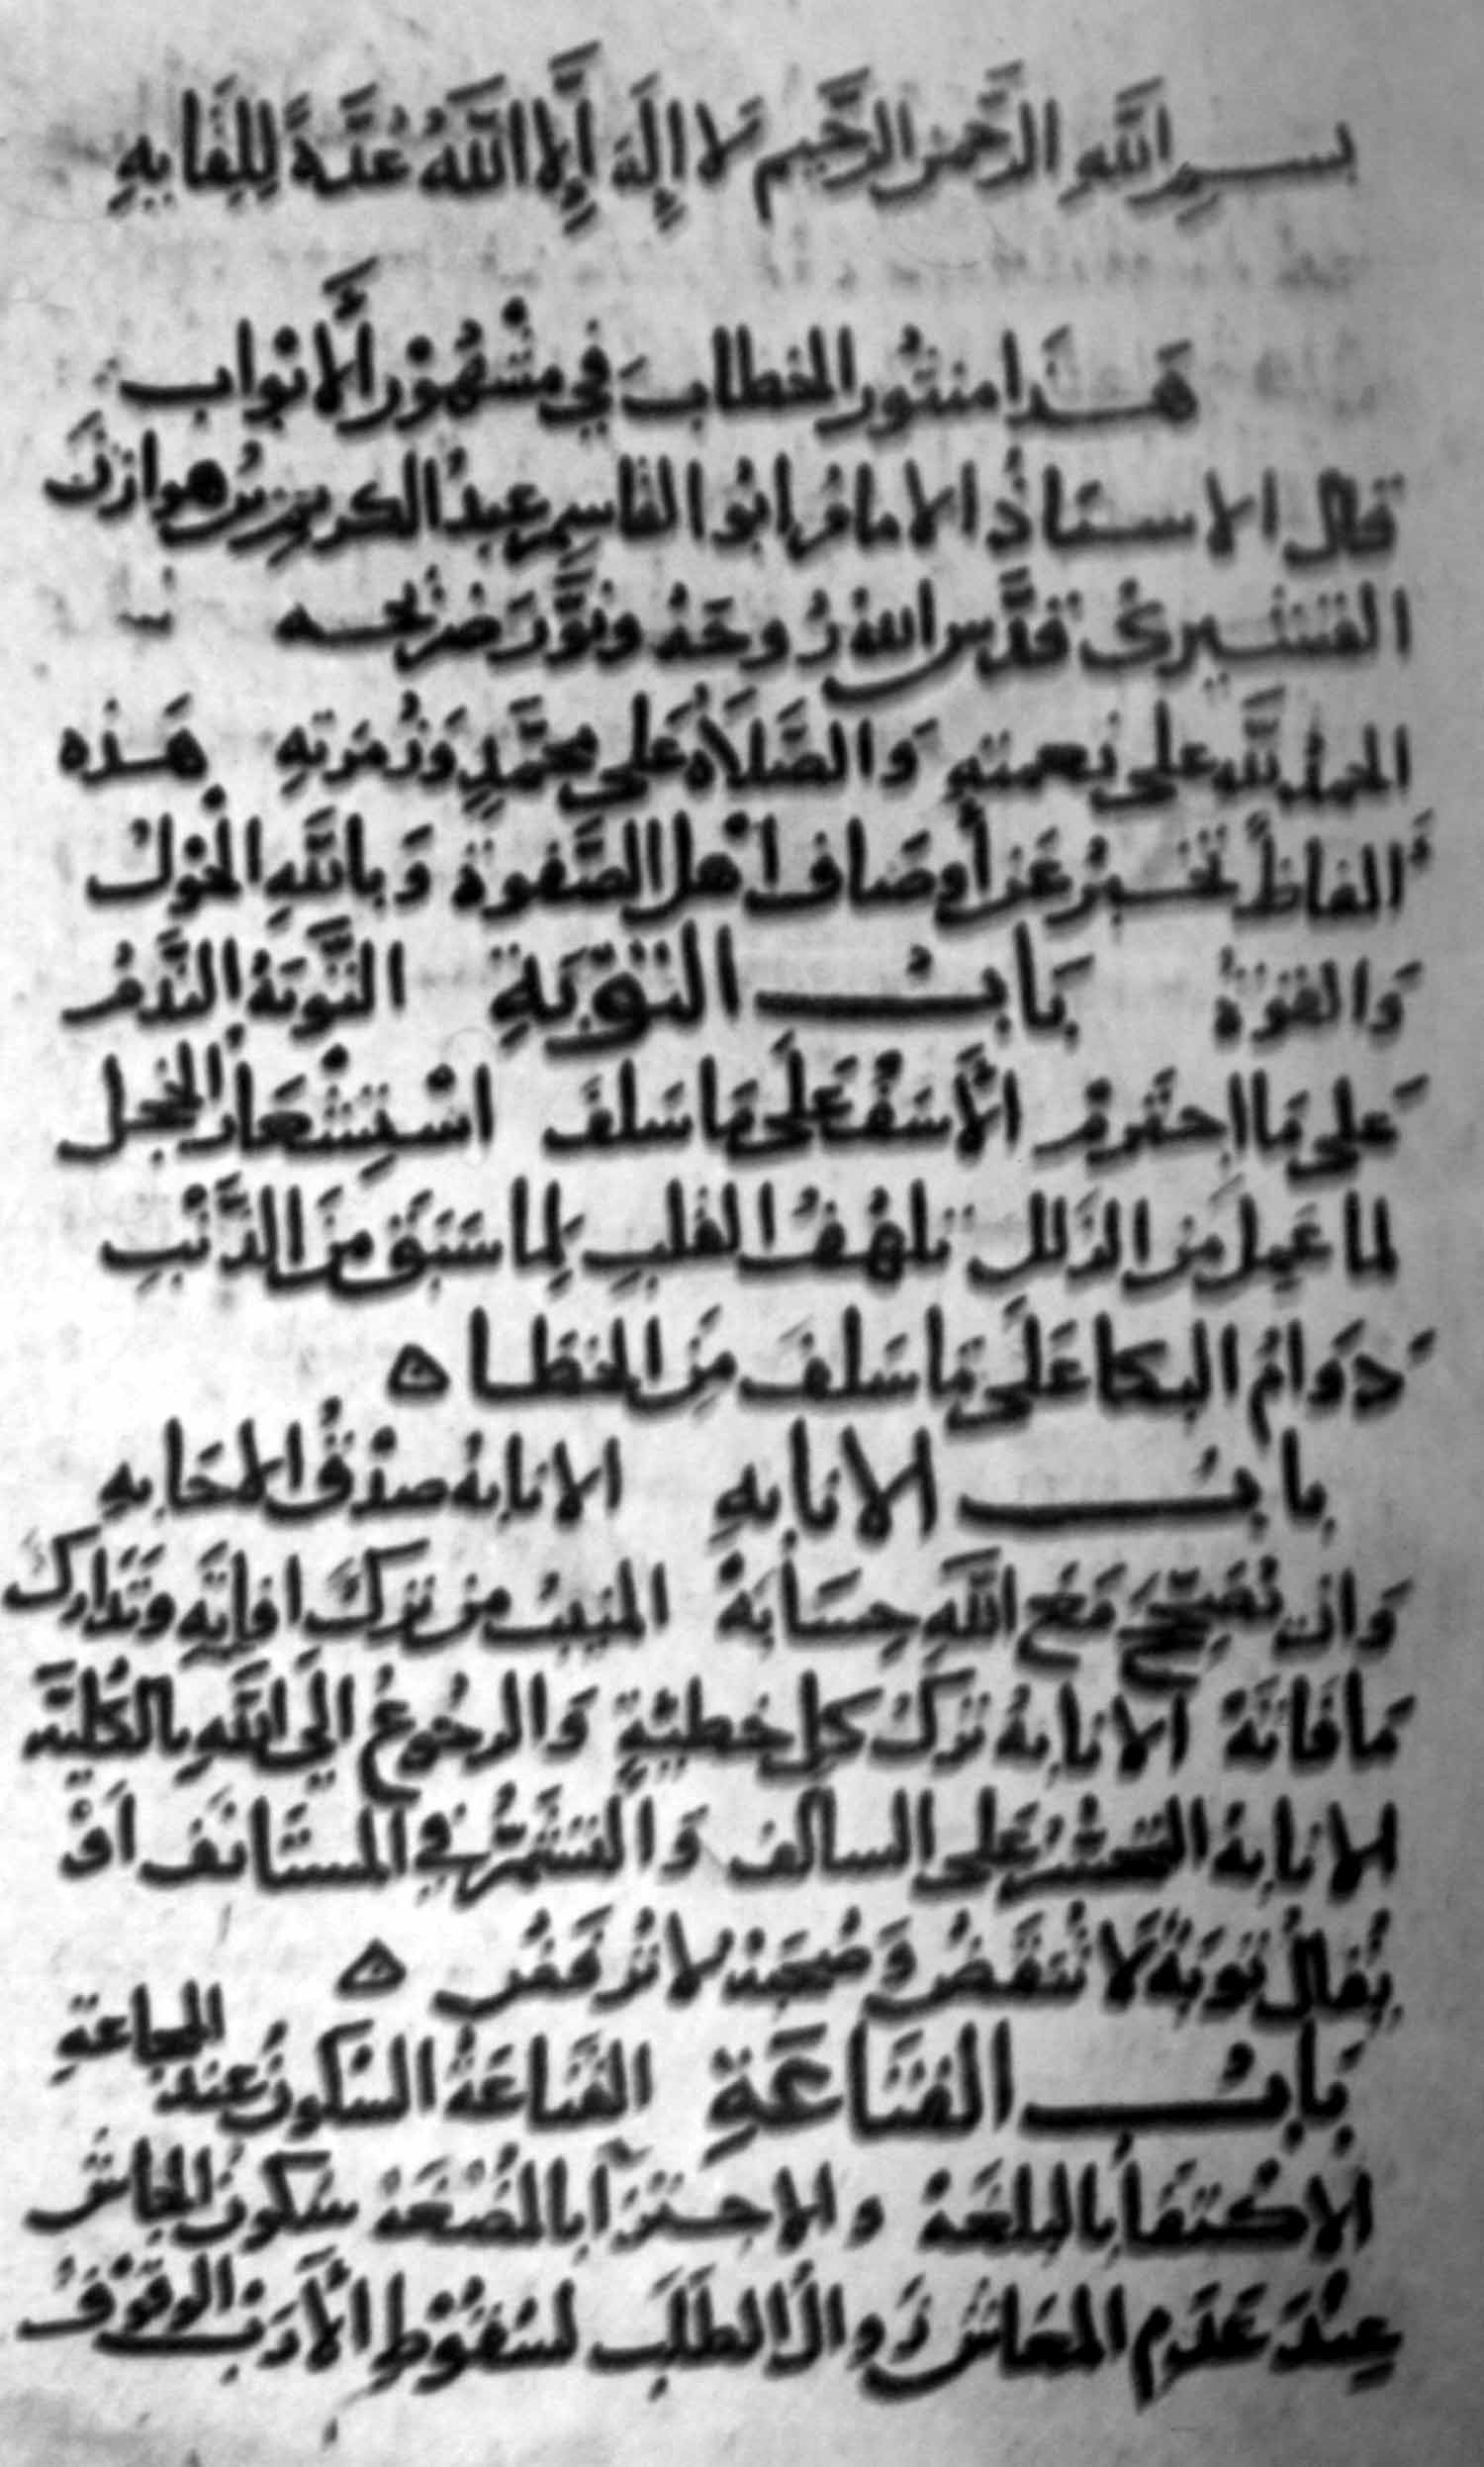 بسم اللهِ الرَّحمن الرَّحيم لا إلَهَ إلَّا اللَّهُ عُدَّةً لِلِقَايِهِ
هَذا منثُور الخطابَ في مشْهُوْر ألأبْواب
قال الاستَاذُ الامامُ ابُو القاسِم عبدُ الكريم بنُ هوازنَ
القشيرىُ قدَّس اللهُ رُوحَهُ ونوَّرَ ضَرْيحه
الحمدُ للَّهِ على نعمتهِ وَالصَّلَاةُ عَلى محمَّدٍ وَزُمرَتهِ هَذه
ألفاظٌ تخبرُ عَن أوصَاف اهْل الصَّفوة وَباللَّهِ الحَوْلُ
وَالقوَّةُ بَابُ التوبَةِ التَّوبَةُ النَّدَمُ
عَلى مَا احترمْ الأَسَفُ عَلَى مَا سَلفَ اسْتِشْعَارُ الخجل
لما عَمِلَ مِن الزلل تلهُّفُ القلبِ لِما سَبَقَ مِنَ الذَّنْبِ
دوَامُ البكا عَلَى مَا سَلفَ مِنَ الخطَا ه
بابُ الانابهِ الانابةُ صدْقُ الاجَابهِ
وَان تُصَحِّحَ مَعَ اللَّهِ حِسَابَهُ المنيبُ من تركَ افاتِهِ وتَدَارك
مَا فَاتَهُ الانابةُ تركُ كل خطيئةٍ وَالرجُوعُ الَى اللَّهِ بالكُليَّة
الانابةُ التحسُّرُ على السالف وَالتشَمُّرُ في المستَانَف اوْ
يُقالُ توبَةٌ لَا تُنقَضُ وَصُحبَةٌ لا تُرفَضُ ه
بَابُ القنَاعَةِ القنَاعَةُ السُكونُ عند المجاعةِ
الاكتفَا بالبلغَهْ والاجتزآ بالمُضْغَهْ سكونُ الجاشِ
عِنْدَ عَدَم المعَاشْ زوالُ الطَلَبْ لسُقوْطِ الأرَبْ الوقوْفُ